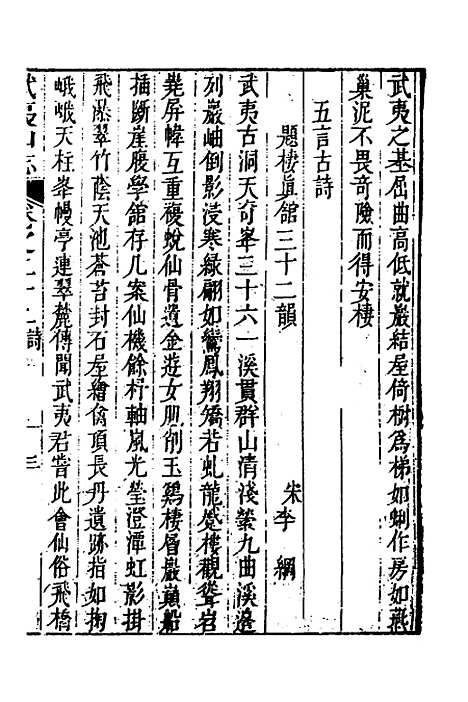 武夷之基屈曲高低就巖結屋倚樹爲梯如蜩作房如燕
巢泥不畏奇險而得安棲
五言古詩
題棲真館三十二韻
宋李綱
武夷古洞天奇峯三十六一溪貫群山清淺縈九曲溪邊
列巖岫倒影浸寒綠翩如鸞鳳翔矯若虬龍蹙樓觀聳岩
嶤屏幃互重複蛻仙骨遺金遊女肌削玉鷄棲層巖巔船
插斷崖腹學舘存几案仙機餘杼軸嵐光瑩澄潭虹影掛
飛瀑翠竹蔭天池蒼苔封石屋繪禽項長丹遺跡指如掬
峨峨天柱峯幔亭連翠麓傳聞武夷君嘗此會仙俗飛橋
武夷山志
卷之二十二詩
三